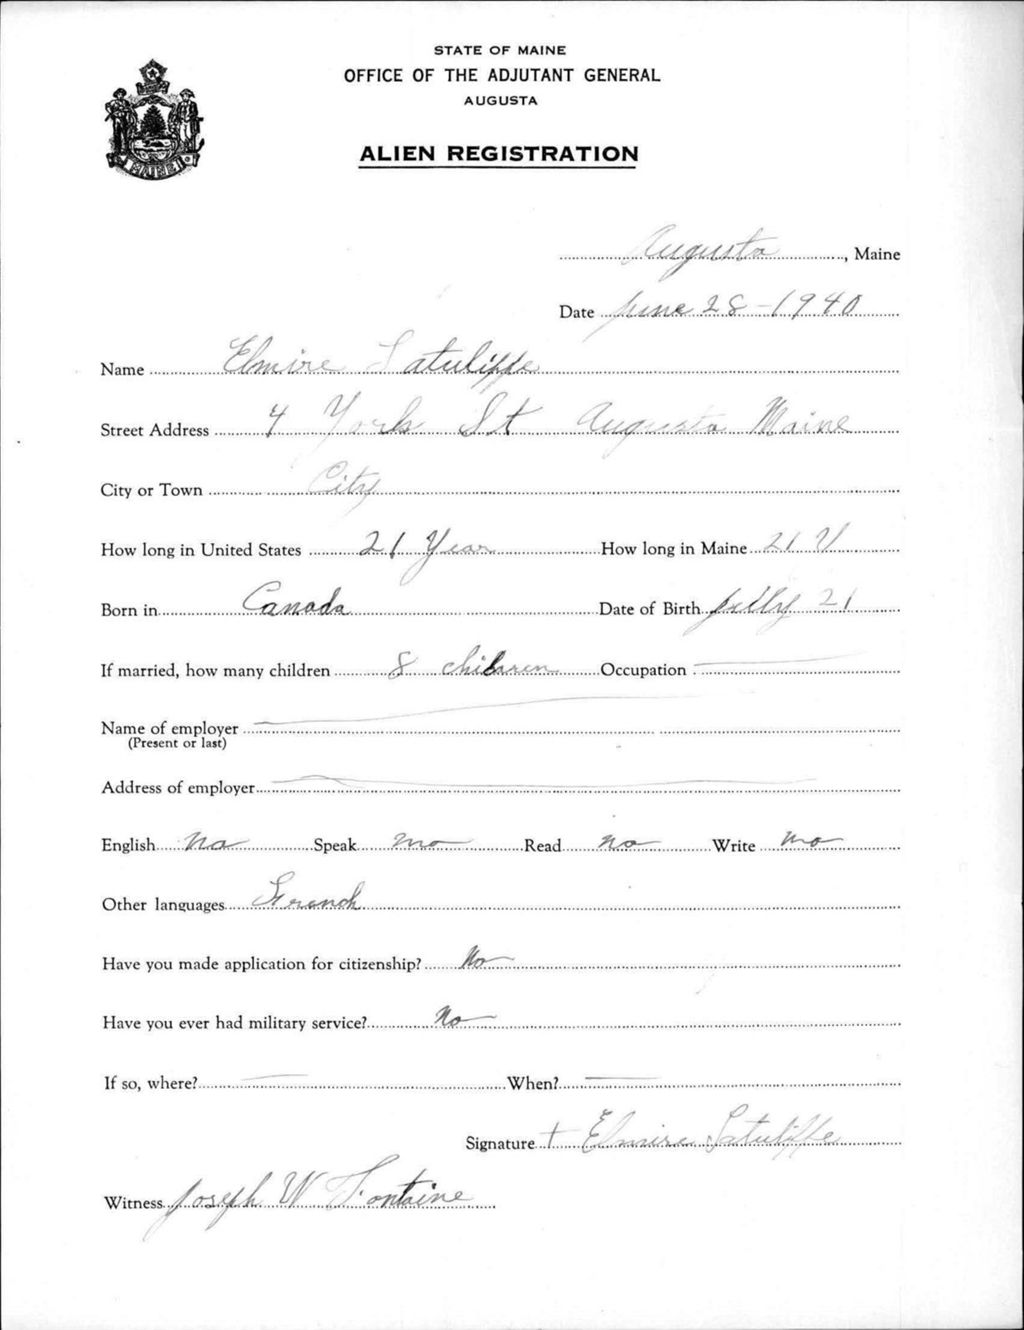 STATE OF MAINE
OFFICE OF THE ADJUTANT GENERAL
AUGUSTA
ALIEN REGISTRATION
MAINE
Augusta, Maine
Date June 28-1940
Name Elmire Latulippe
Street Address 4 York St Augusta Maine
City or Town City
How long in United States 21 Year How long in Maine 21 Y
Born in Canada Date of Birth July 21
If married, how many children 8 children Occupation —
Name of employer —
(Present or last)
Address of employer —
English No Speak no Read no Write no
Other languages French
Have you made application for citizenship? No
Have you ever had military service? No
If so, where? — When? —
Signature + Elmire Latulippe
Witness Joseph W Fontaine